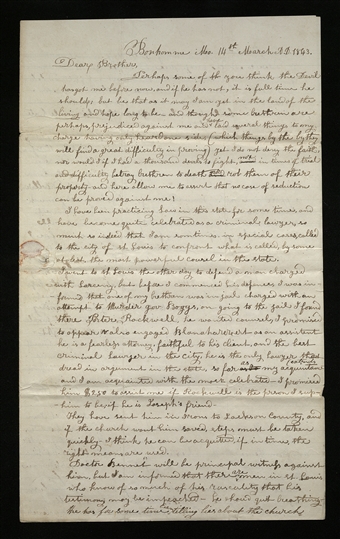 Bonhomme Mo. 14th March A.D. 1843.
Dear Brother,
Perhaps some of you think the Devil
has got me before now, and if he has not, it is full time he
should, but be that as it may I am yet in the land of the
living and hope long to be and though some brethren are
perhaps prejudiced against me and laid several things to my
charge
will find a great difficulty in proving yet I do not deny the faith
nor would I if I had a thousand deaths to fight, nor in times of trial
and difficulty betray brethren to death and rob them of their
property and here allow me to assert that no case of seduction
can be proved against me!
I have been practicing law in this state for some time, and
have become quite celebrated as a criminal lawyer, so
much so indeed that I am sometimes in special cases called
to the city of St Louis to confront what is called, by some
styled, the most powerful council in this state.
I went to St Louis the other day to defend a man charged
with larceny, but before I commenced his defence I was in-
formed that one of my brethren was in jail charged with an
attempt to murder Gov. Boggs, on going to the jail I found
there Porter Rockwell, he wanted council & I promised
to appear & also engaged as an assistant
he is a fearless attorney, faithful to his client, and the best
criminal lawyer in the city, he is the only lawyer that I
dread in argument in the state so far as my acquaintance extends
and I am acquainted with the most celebrated. I promised
him $250 to assist me if Rockwell is the person I sup-
him to be, if he is Joseph's friend.
They have sent him in Irons to Jackson County, and
if the church want him saved, steps must be taken
quickly. I think he can be acquitted if in time the
right means are used.
Doctor Bennet will be principal witness against
him, but I am informed that there are men in St. Louis
who know of so much of his rascality that his
testimony may be impeached. He should quit breathing
he has for some time telling lies about the church